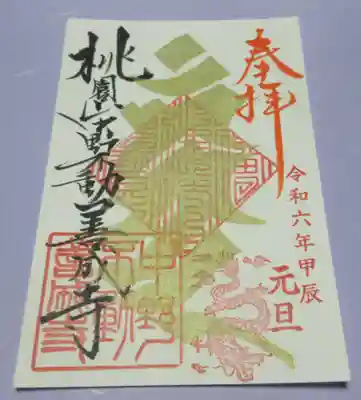 奉拝
令和六年甲辰
元旦
桃園山中野不動善成寺